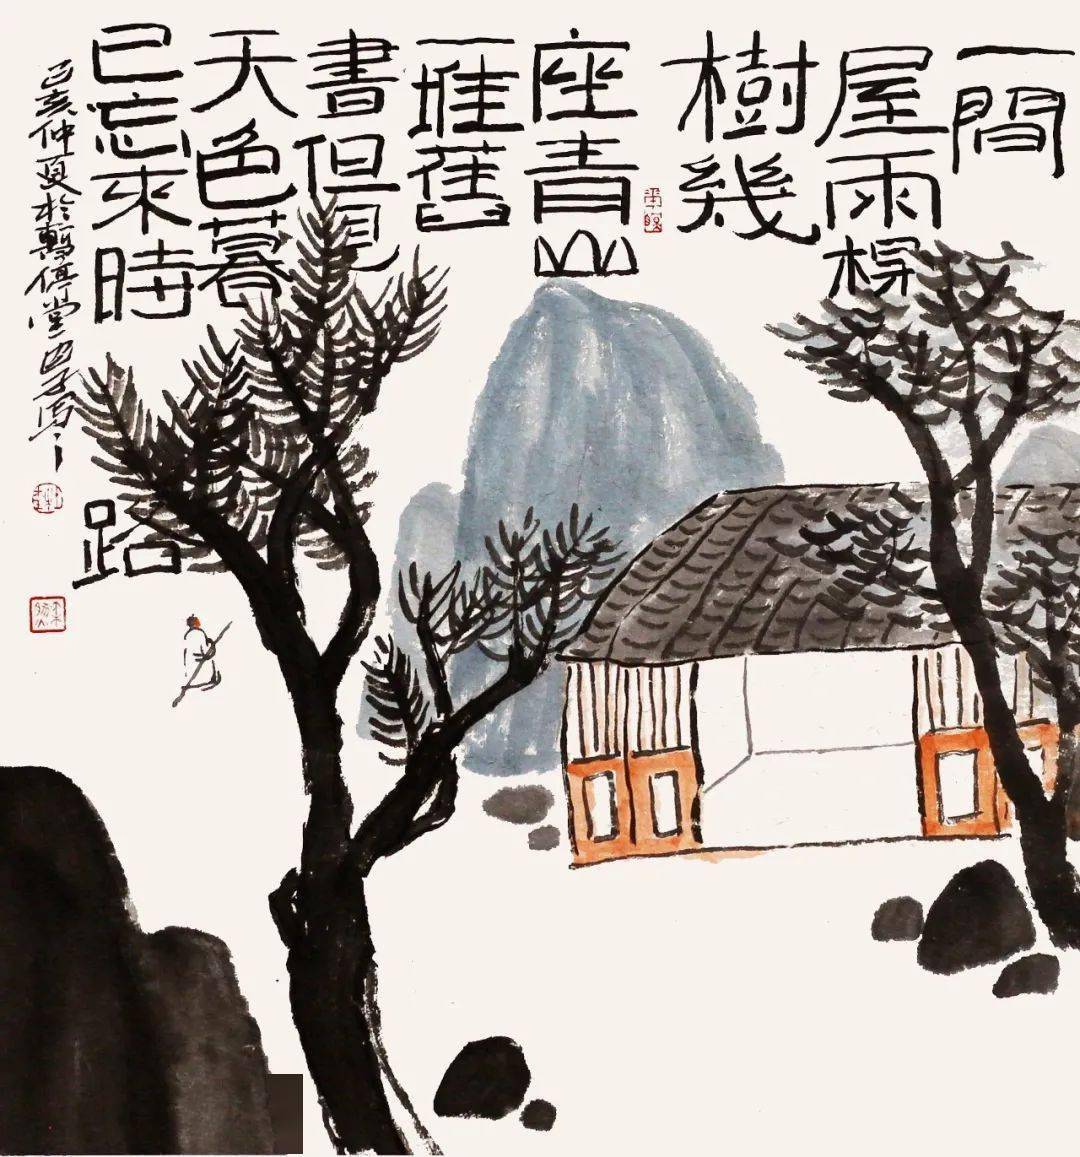 一間
屋兩棵
樹幾
座青山
一堆舊
書但見
天色暮
已忘來時路
己亥仲夏於暫停堂